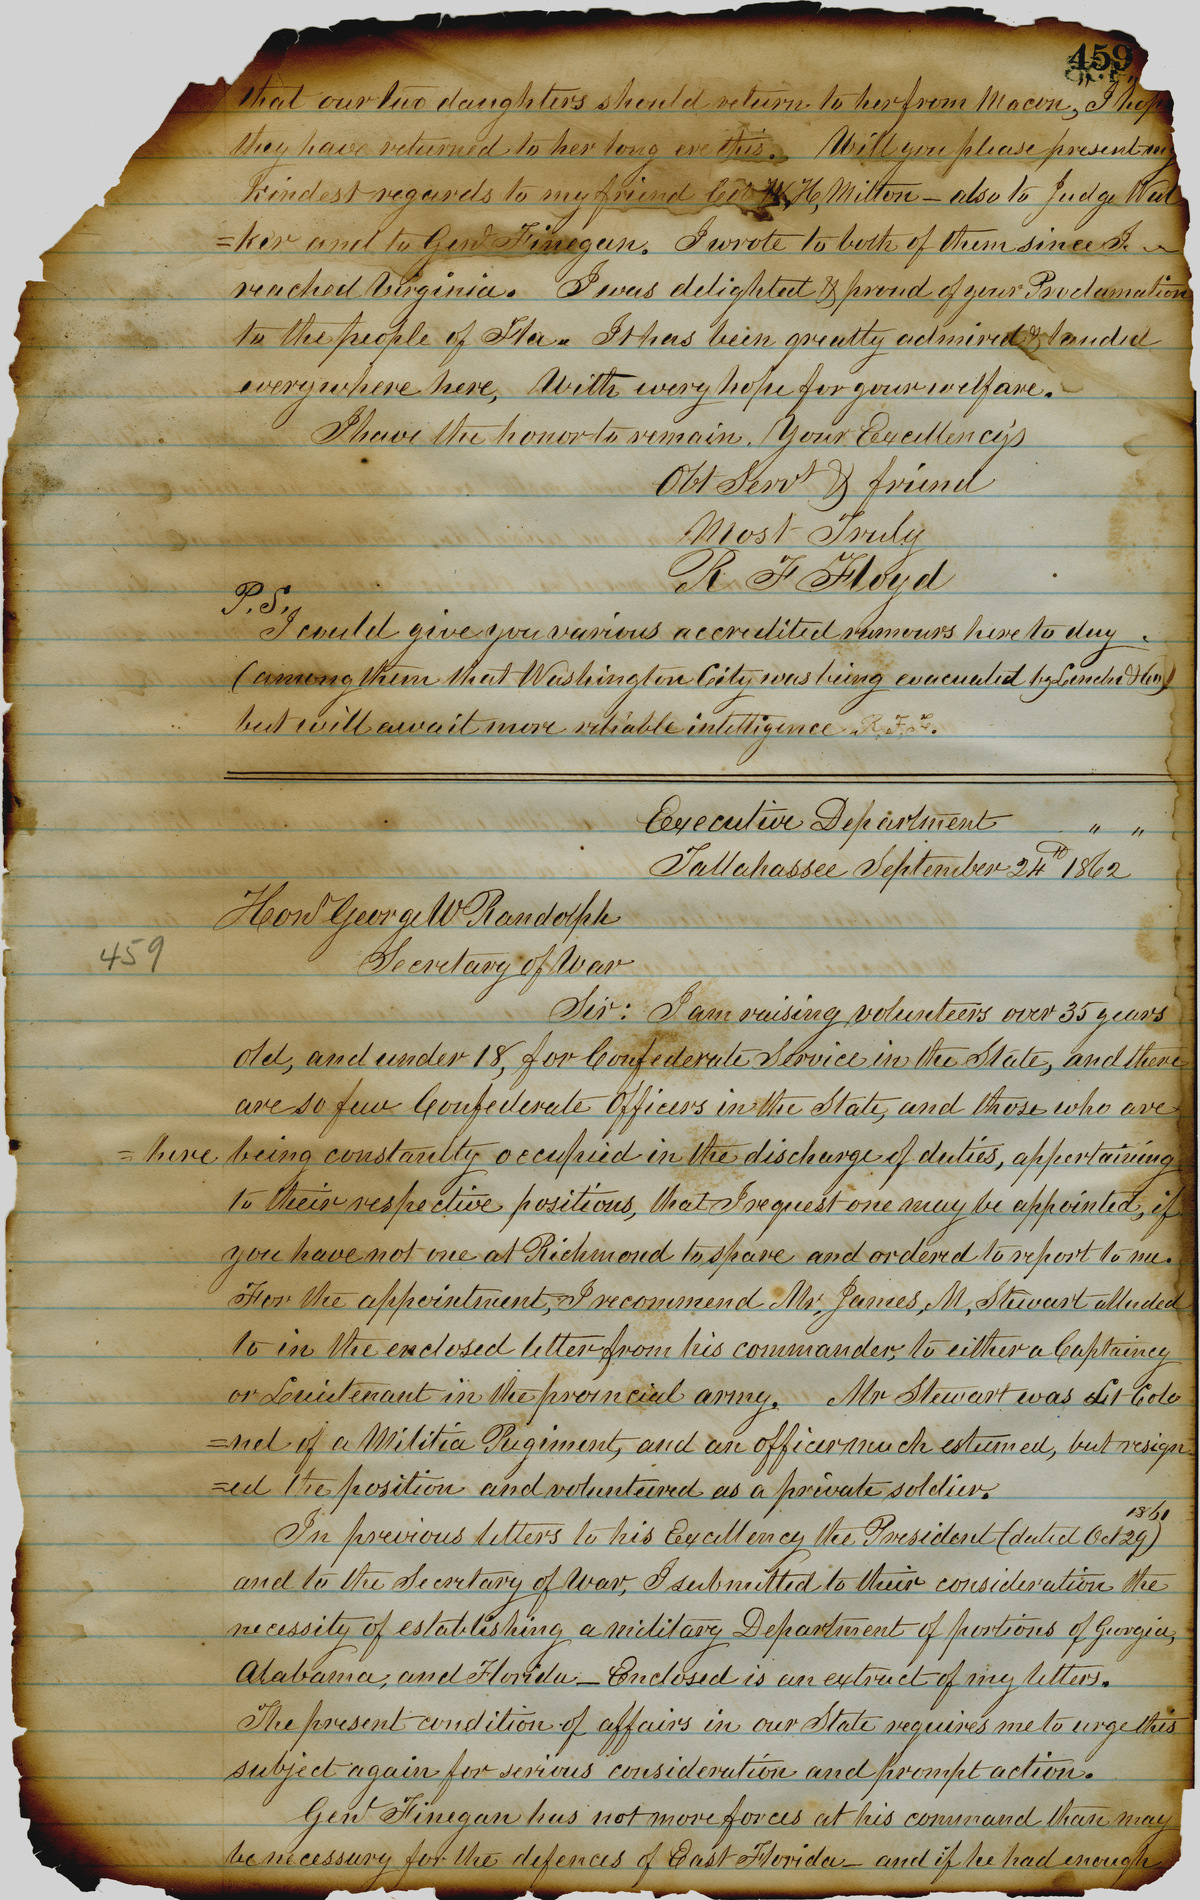 459
that our two daughters should return to her from Macon, I hope
they have returned to her long ere this. Will you please present my
kindest regards to my friend Col W, H, Milton – also to Judge Wal
=ker and to Genl Finegan. I wrote to both of them since I
reached Virginia. I was delighted & proud of your Proclamation
to the people of Fla. It has been greatly admired & lauded
everywhere here, With every hope for your welfare.
I have the honor to remain, Your Excellency's
Obt Servt & friend
Most Truly
R F Floyd
P.S.,
I could give you various accredited rumours here to day
(among them that Washington City was being evacuated by
but will await more reliable intelligence R.F.F.
Executive Department " "
Tallahassee September 24th 1862
Honl George W Randolph
459
Secretary of War
Sir: I am raising volunteers over 35 years
old, and under 18, for Confederate Service in the State, and there
are so few Confederate Officers in the State, and those who are
=here being constantly occupied in the discharge of duties, appertaining
to their respective positions, that I request one may be appointed, if
you have not one at Richmond to spare and ordered to report to me.
For the appointment, I recommend Mr, James, M, Stewart alluded
to in the enclosed letter from his commander, to either a Captaincy
or Lieutenant in the provincial army. Mr Stewart was Lt Colo
=nel of a Militia Regiment, and an officer much esteemed, but resign
=ed the position and volunteered as a private soldier.
In previous letters to his Excellency the President (dated Oct 29) 1861
and to the Secretary of War, I submitted to their consideration the
necessity of establishing a military Department of portions of Georgia,
Alabama, and Florida – Enclosed is an extract of my letters.
The present condition of affairs in our State requires me to urge this
subject again for serious consideration and prompt action.
Genl Finegan has not more forces at his command than may
be necessary for the defences of East Florida – and if he had enough